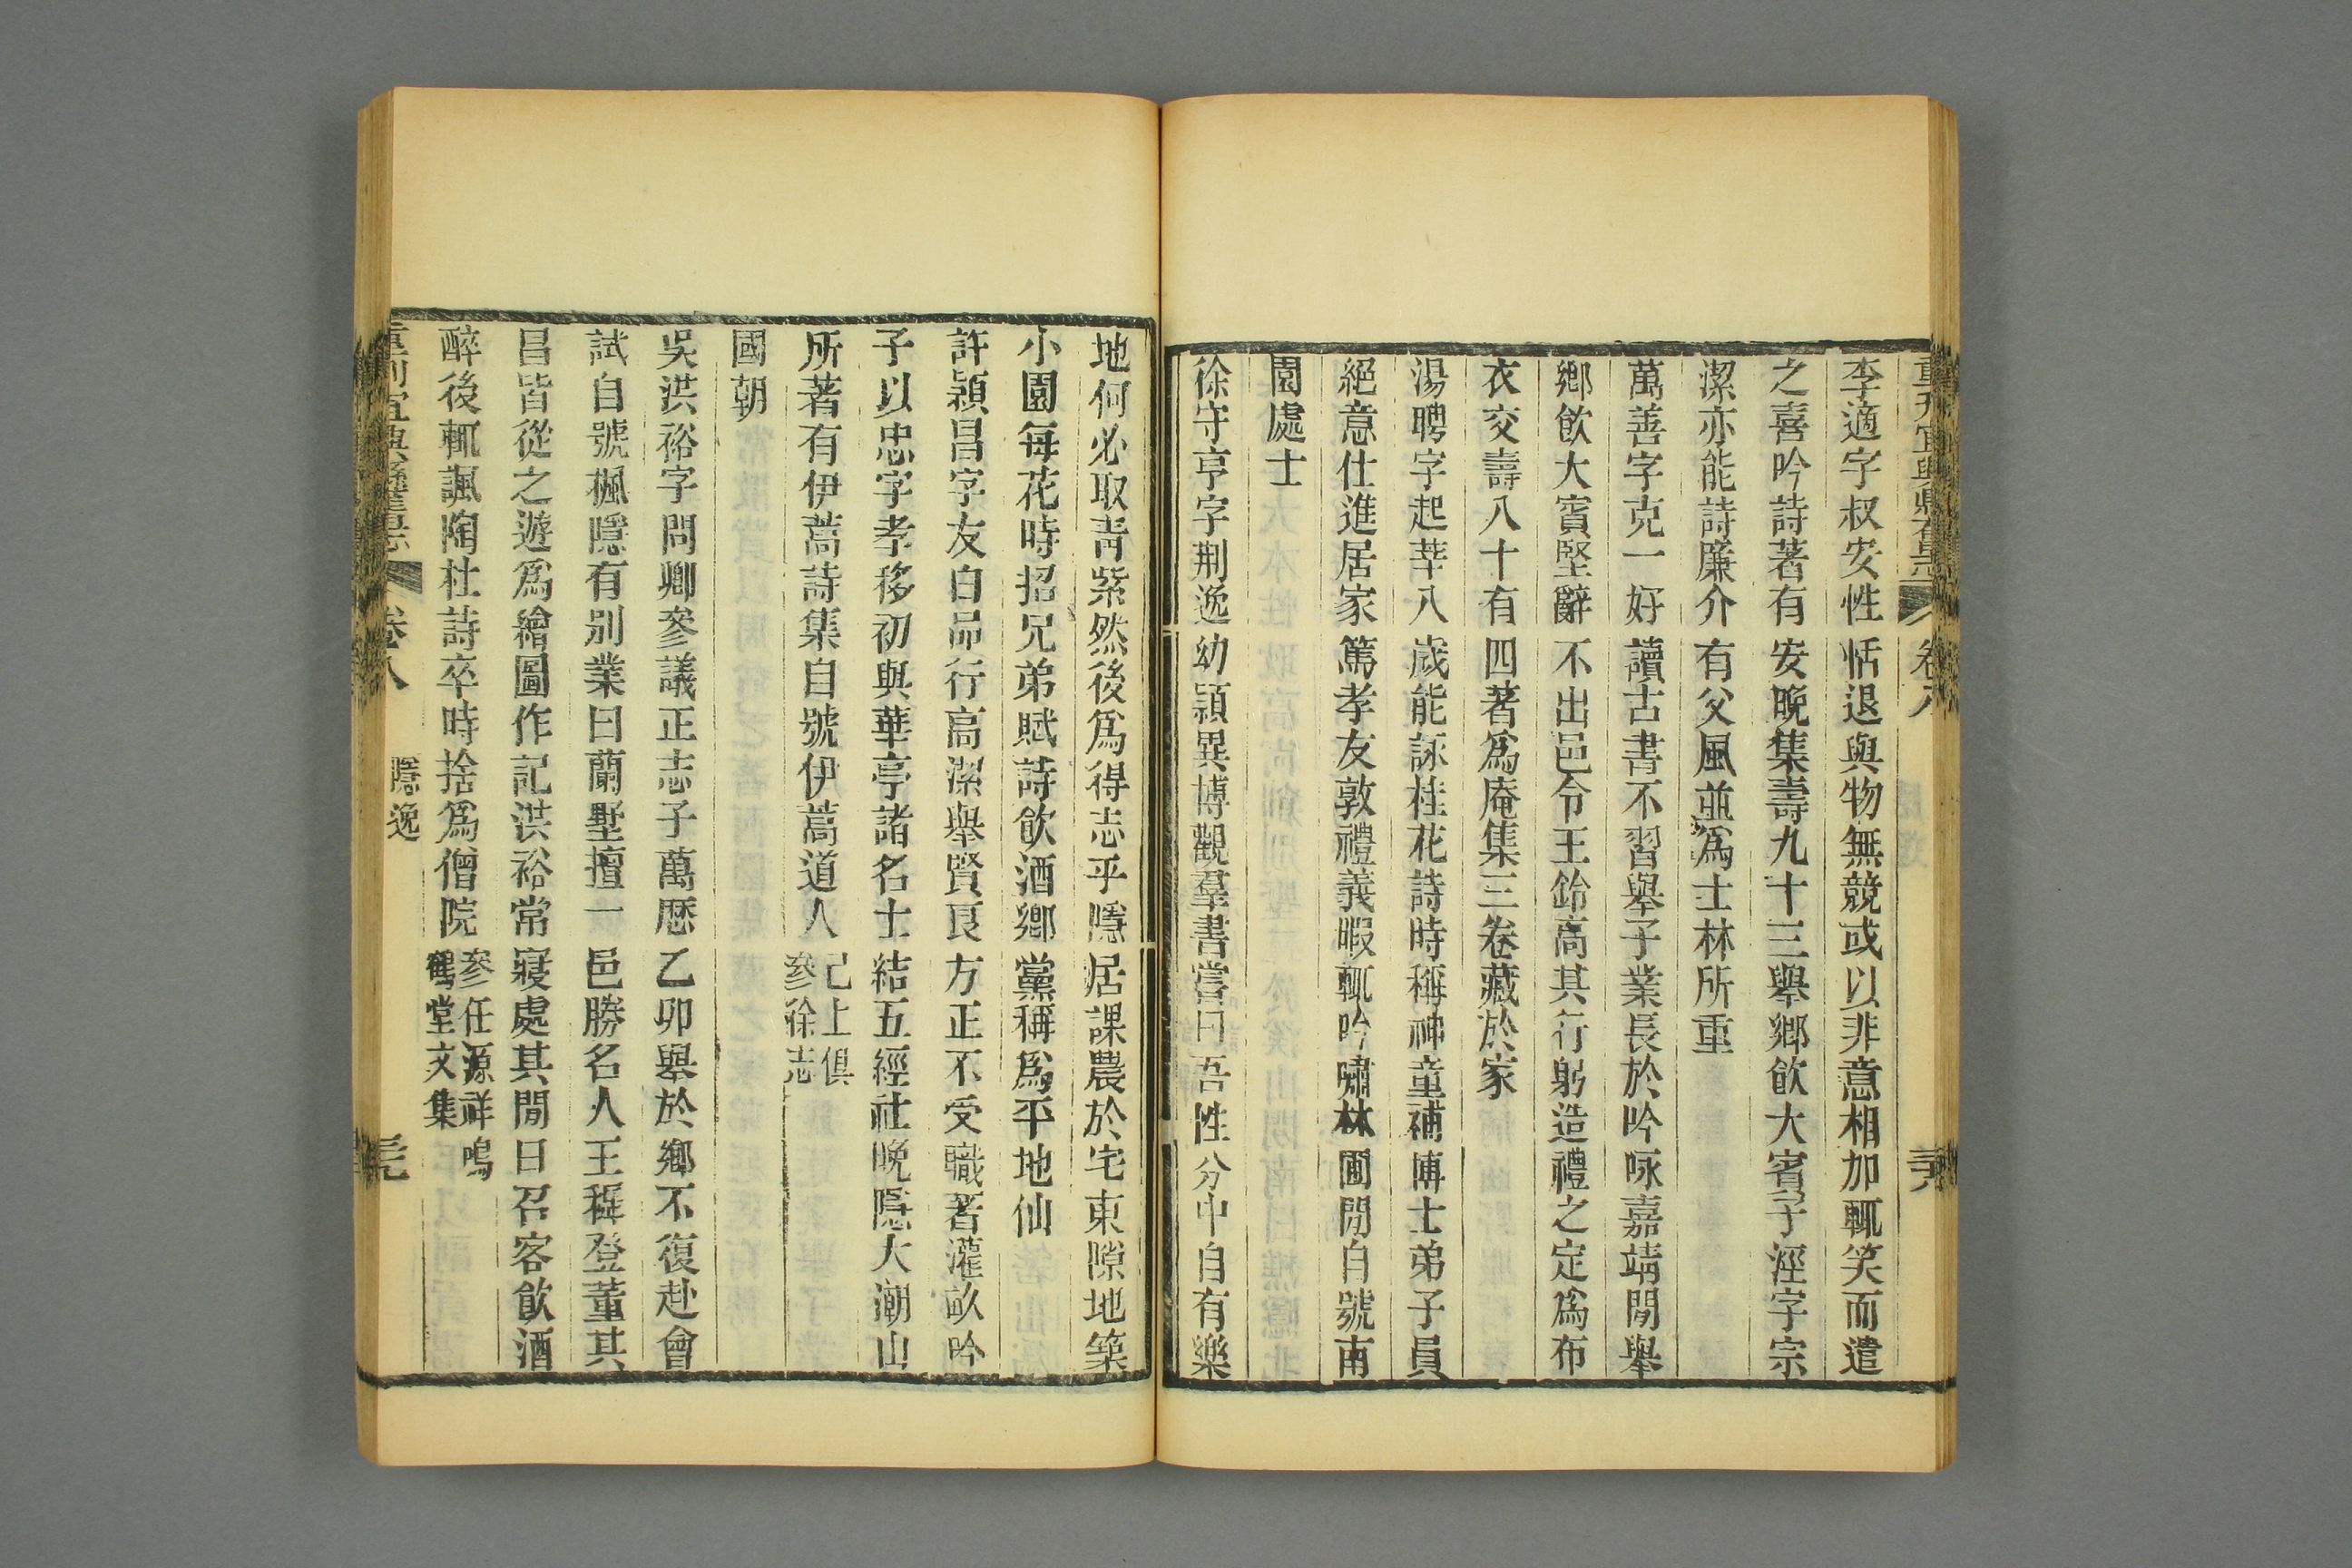 重刊宜興縣舊志 卷八
李適字叔安性恬退與物無競或以非意相加輒笑而遣
之喜吟詩著有安晚集壽九十三舉鄉飲大賓子涇字宗
潔亦能詩廉介有父風並爲士林所重
萬善字克一好讀古書不習舉子業長於吟咏嘉靖間舉
鄉飲大賓堅辭不出邑令王鈴高其行躬造禮之定爲布
衣交壽八十有四著爲庵集三卷藏於家
湯聘字起莘八歲能詠桂花詩時稱神童補博士弟子員
絕意仕進居家篤孝友敦禮義暇輒吟嘯林圃閒自號南
園處士
徐守亨字荆逸幼穎異博觀羣書嘗曰吾性分中自有樂
地何必取靑紫然後爲得志乎隱居課農於宅東隙地築
小園每花時招兄弟賦詩飲酒鄉黨稱爲平地仙
許穎昌字友白品行高潔舉賢良方正不受職著灌畝吟
子以忠字孝移初與華亭諸名士結五經社晚隱大潮山
所著有伊蒿詩集自號伊蒿道人 已上俱
參徐志
國朝
吳洪裕字問卿參議正志子萬厯乙卯舉於鄉不復赴會
試自號楓隱有別業曰蘭墅擅一邑勝名人王穉登董其
昌皆從之遊爲繪圖作記洪裕常寢處其間日召客飲酒
醉後輒諷陶杜詩卒時捨爲僧院 參任源祥鳴
鶴堂文集
重刊宜興縣舊志 卷八 隱逸